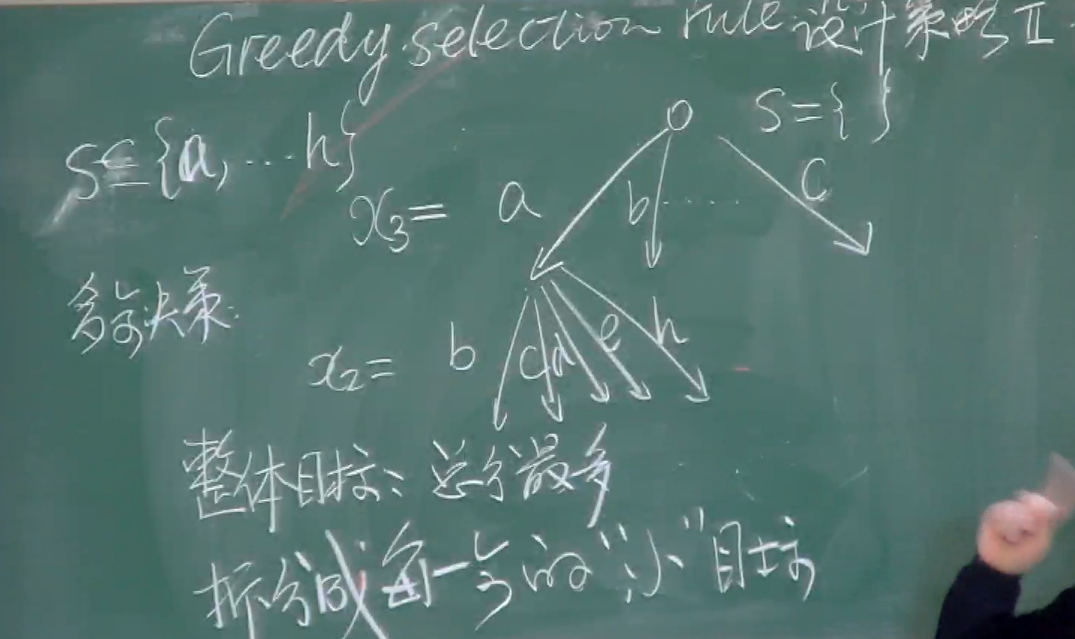 Greedy selection rule 设计策略 II
O S={ }
S⊆{a, ...h}
x₃= a b ...... c
多步决策:
x₂= b c d e h
整体目标: 总分最多
拆分成每一步的“小”目标